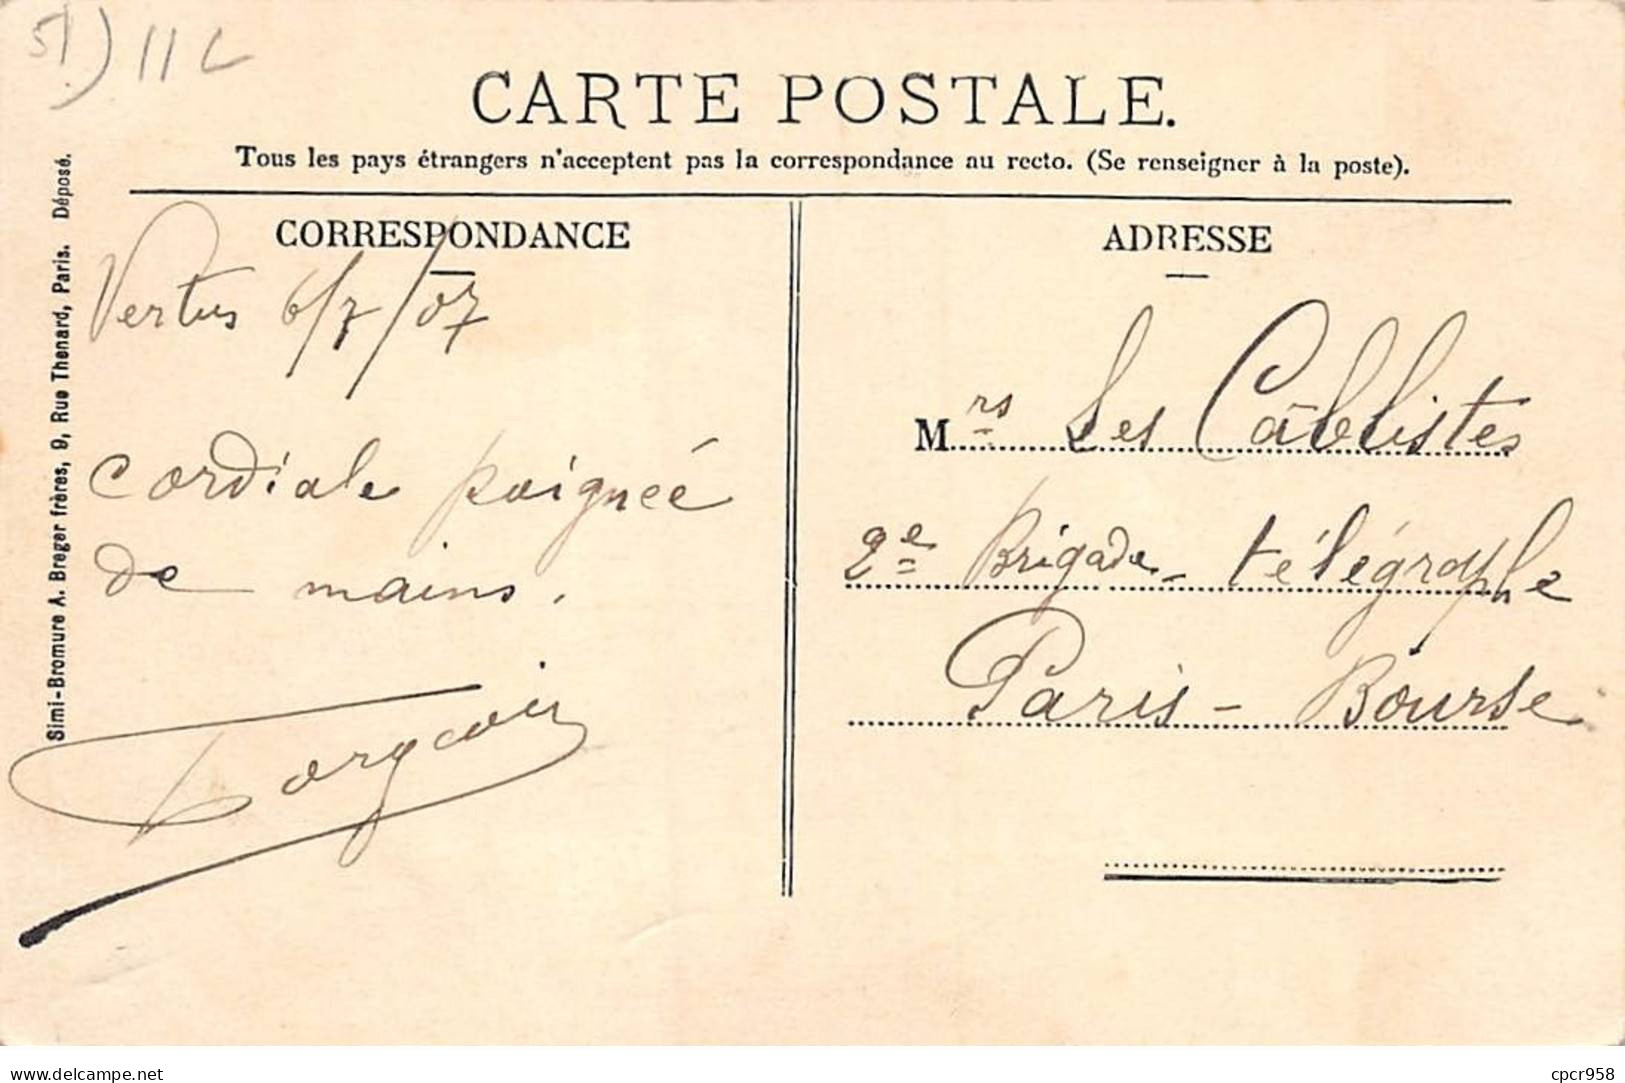 51) 11 L
CARTE POSTALE.
Tous les pays étrangers n'acceptent pas la correspondance au recto. (Se renseigner à la poste).
CORRESPONDANCE
Vertus 6/7/07
Cordiale poignée
de mains.
ADRESSE
Mrs Les Câblistes
2e Brigade - télégraphe
Paris - Bourse
Simi-Bromure A. Breger frères, 9, Rue Thenard, Paris. Déposé.
delcampe.net
cpcr958